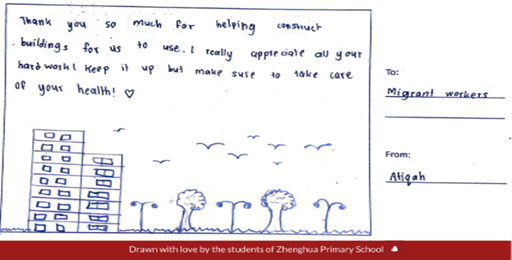 Thank you so much for helping construct
buildings for us to use. I really appreciate all your
hard work! Keep it up but make sure to take care
of your health! ♡
To:
Migrant workers
From:
Atiqah
Drawn with love by the students of Zhenghua Primary School